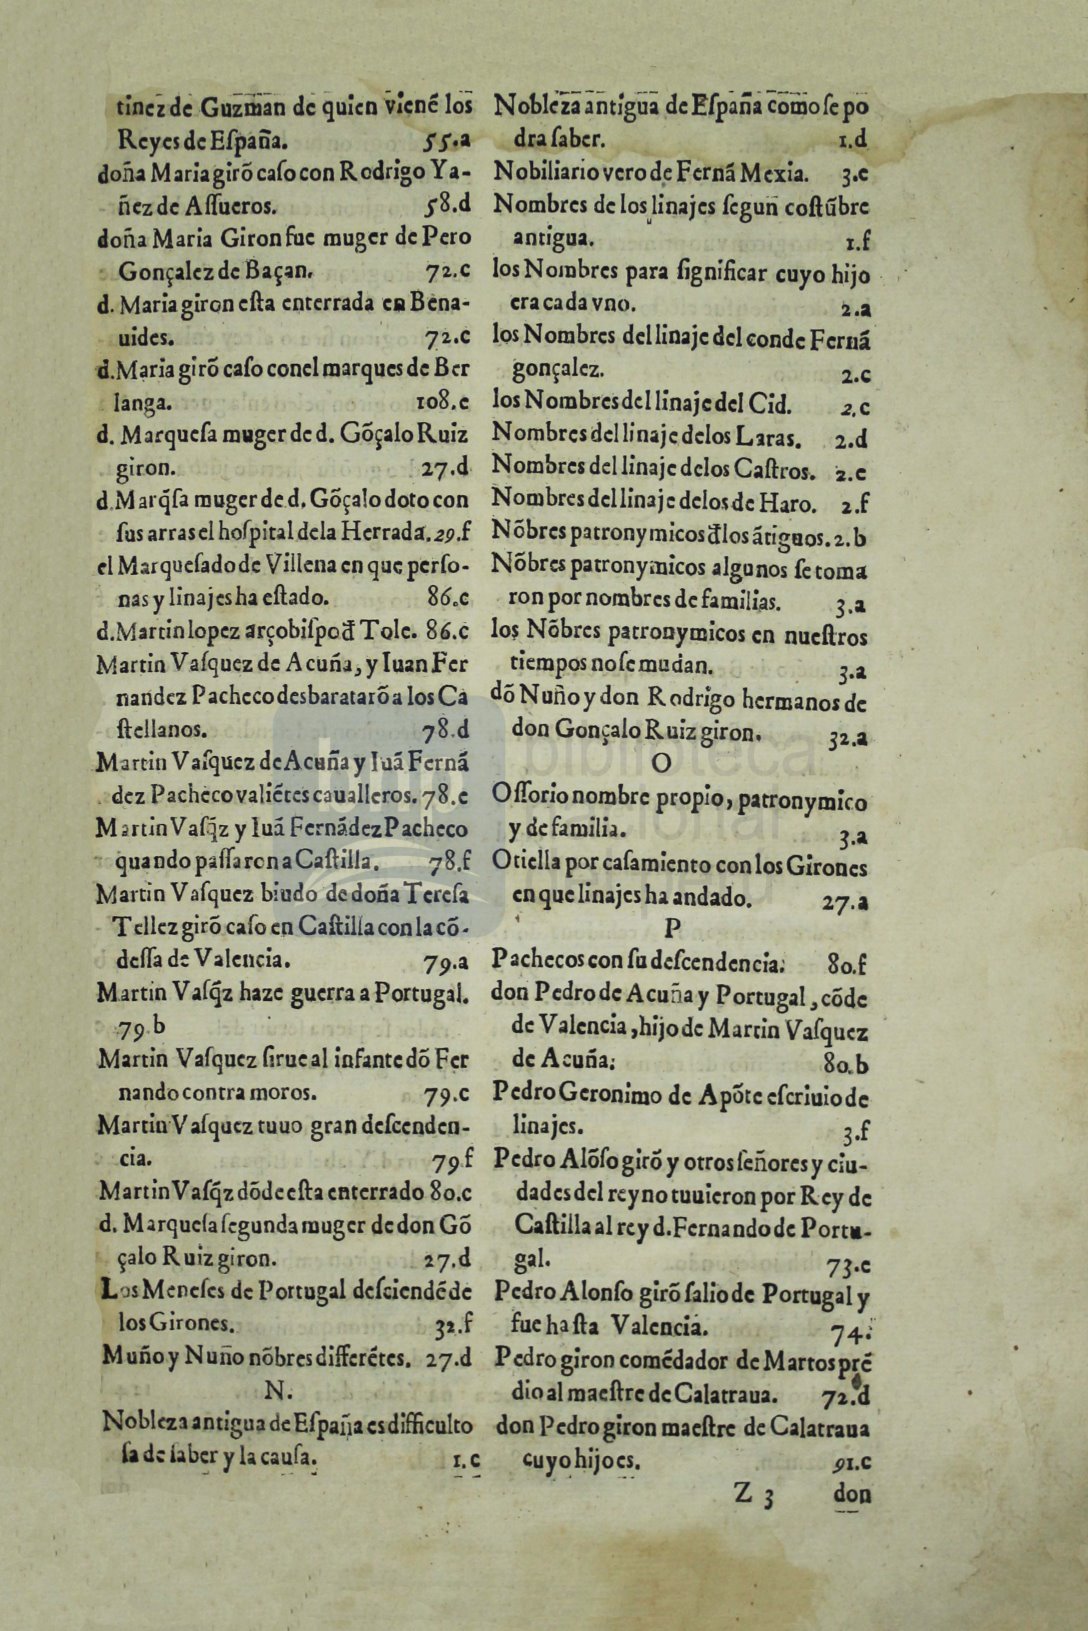 tinez de Guzman de quien vienẽ los
Reyes de Eſpaña. 55.a
doña Maria girõ caſo con Rodrigo Ya-
ñez de Aſſueros. 58.d
doña Maria Giron fue muger de Pero
Gonçalez de Baçan. 72.c
d. Maria giron eſta enterrada en Bena-
uides. 72.c
d.Maria girõ caſo conel marques de Ber
langa. 108.e
d. Marqueſa muger de d. Gõçalo Ruiz
giron. 27.d
d.Marq̃ſa muger de d. Gõçalo doto con
ſus arras el hoſpital dela Herrada. 29.f
el Marqueſado de Villena en que perſo-
nas y linajes ha eſtado. 86.c
d.Martin lopez arçobiſpo đ Tole. 86.c
Martin Vaſquez de Acuña, y Iuan Fer
nandez Pacheco desbaratarõ a los Ca
ſtellanos. 78.d
Martin Vaſquez de Acuña y Iuã Fernã
dez Pacheco valiẽtes caualleros. 78.e
Martin Vaſq̃z y Iuã Fernãdez Pacheco
quando paſſaron a Caſtilla. 78.f
Martin Vaſquez biudo de doña Tereſa
Tellez girõ caſo en Caſtilla con la cõ-
deſſa de Valencia. 79.a
Martin Vaſq̃z haze guerra a Portugal.
79.b
Martin Vaſquez ſirue al infante dõ Fer
nando contra moros. 79.c
Martin Vaſquez tuuo gran deſcenden-
cia. 79.f
Martin Vaſq̃z dõde eſta enterrado 80.c
d. Marqueſa ſegunda muger de don Gõ
çalo Ruiz giron. 27.d
Los Meneſes de Portugal deſciendẽ de
los Girones. 32.f
Muño y Nuño nõbres differẽtes. 27.d
N.
Nobleza antigua de Eſpaña es difficulto
ſa de ſaber y la cauſa. 1.c
Nobleza antigua de Eſpaña como ſe po
dra ſaber. 1.d
Nobiliario vero de Fernã Mexia. 3.e
Nombres de los linajes ſegun coſtũbre
antigua. 1.f
los Nombres para ſignificar cuyo hijo
era cada vno. 2.a
los Nombres del linaje del conde Fernã
gonçalez. 2.c
los Nombres del linaje del Cid. 2.c
Nombres del linaje delos Laras. 2.d
Nombres del linaje delos Caſtros. 2.e
Nombres del linaje delos de Haro. 2.f
Nõbres patronymicos đlos ãtiguos. 2.b
Nõbres patronymicos algunos ſe toma
ron por nombres de familias. 3.a
los Nõbres patronymicos en nueſtros
tiempos no ſe mudan. 3.a
dõ Nuño y don Rodrigo hermanos de
don Gonçalo Ruiz giron. 32.a
O
Oſſorio nombre propio, patronymico
y de familia. 3.a
Otiella por caſamiento con los Girones
en que linajes ha andado. 27.a
P
Pachecos con ſu deſcendencia. 80.f
don Pedro de Acuña y Portugal, cõde
de Valencia, hijo de Martin Vaſquez
de Acuña. 80.b
Pedro Geronimo de Apõte eſcriuio de
linajes. 3.f
Pedro Alõſo girõ y otros ſeñores y ciu-
dades del reyno tuuieron por Rey de
Caſtilla al rey d.Fernando de Portu-
gal. 73.e
Pedro Alonſo girõ ſalio de Portugal y
fue haſta Valencia. 74.
Pedro giron comẽdador de Martos prẽ
dio al maeſtre de Calatraua. 72.d
don Pedro giron maeſtre de Calatraua
cuyo hijo es. 91.c
Z 3 don